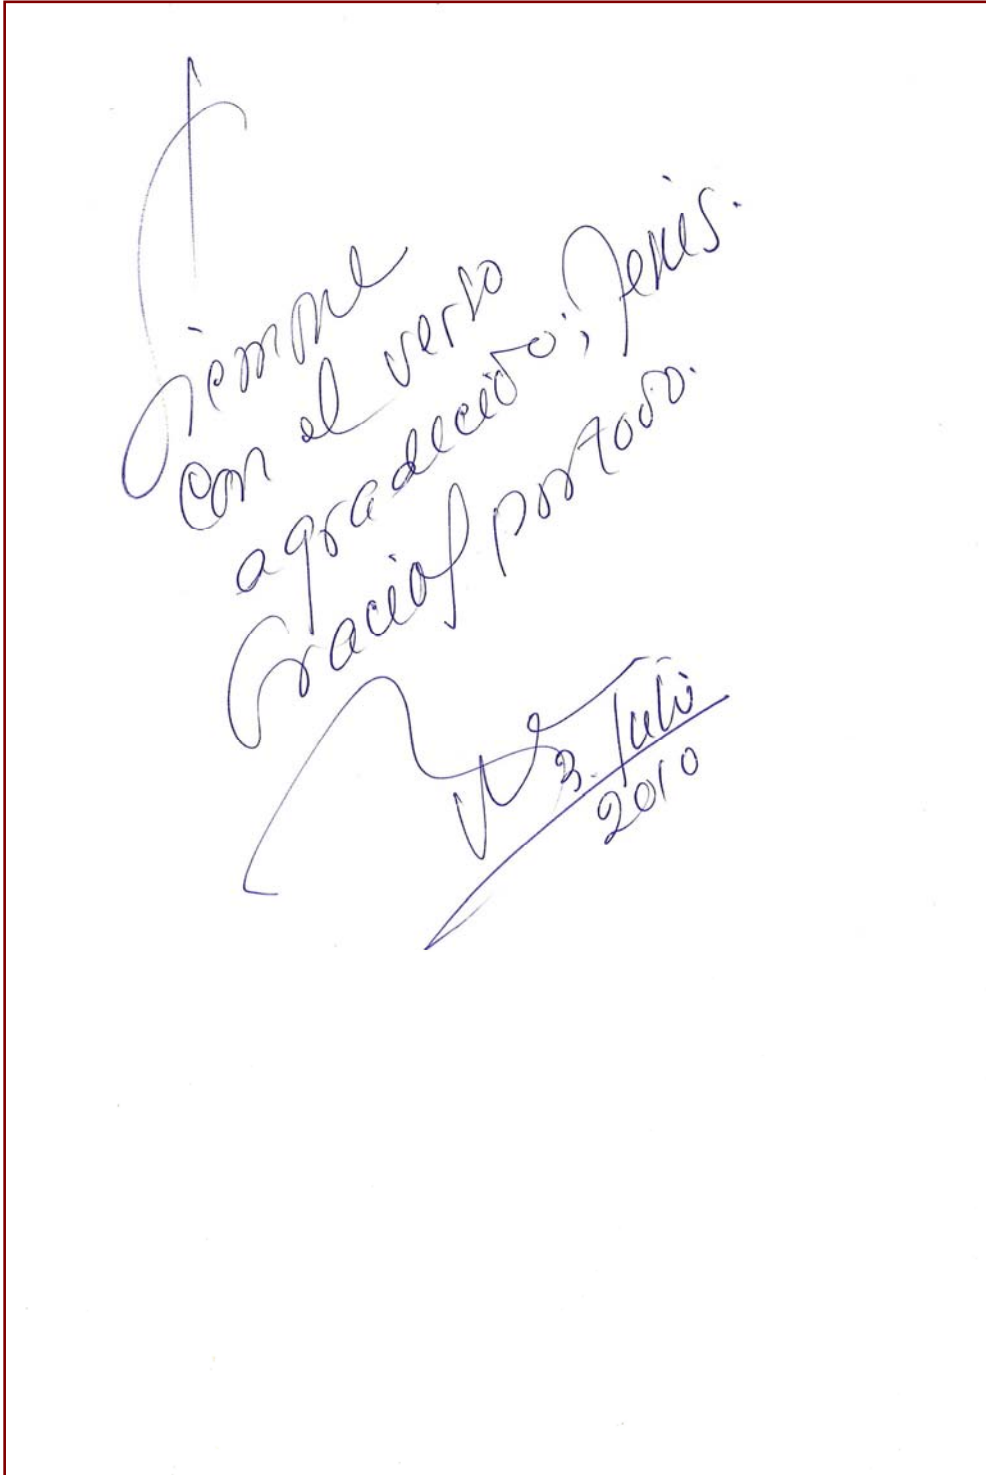 Siempre
con el verbo
agradecido; Jesús.
Gracias por todo.
3. Julio
2010